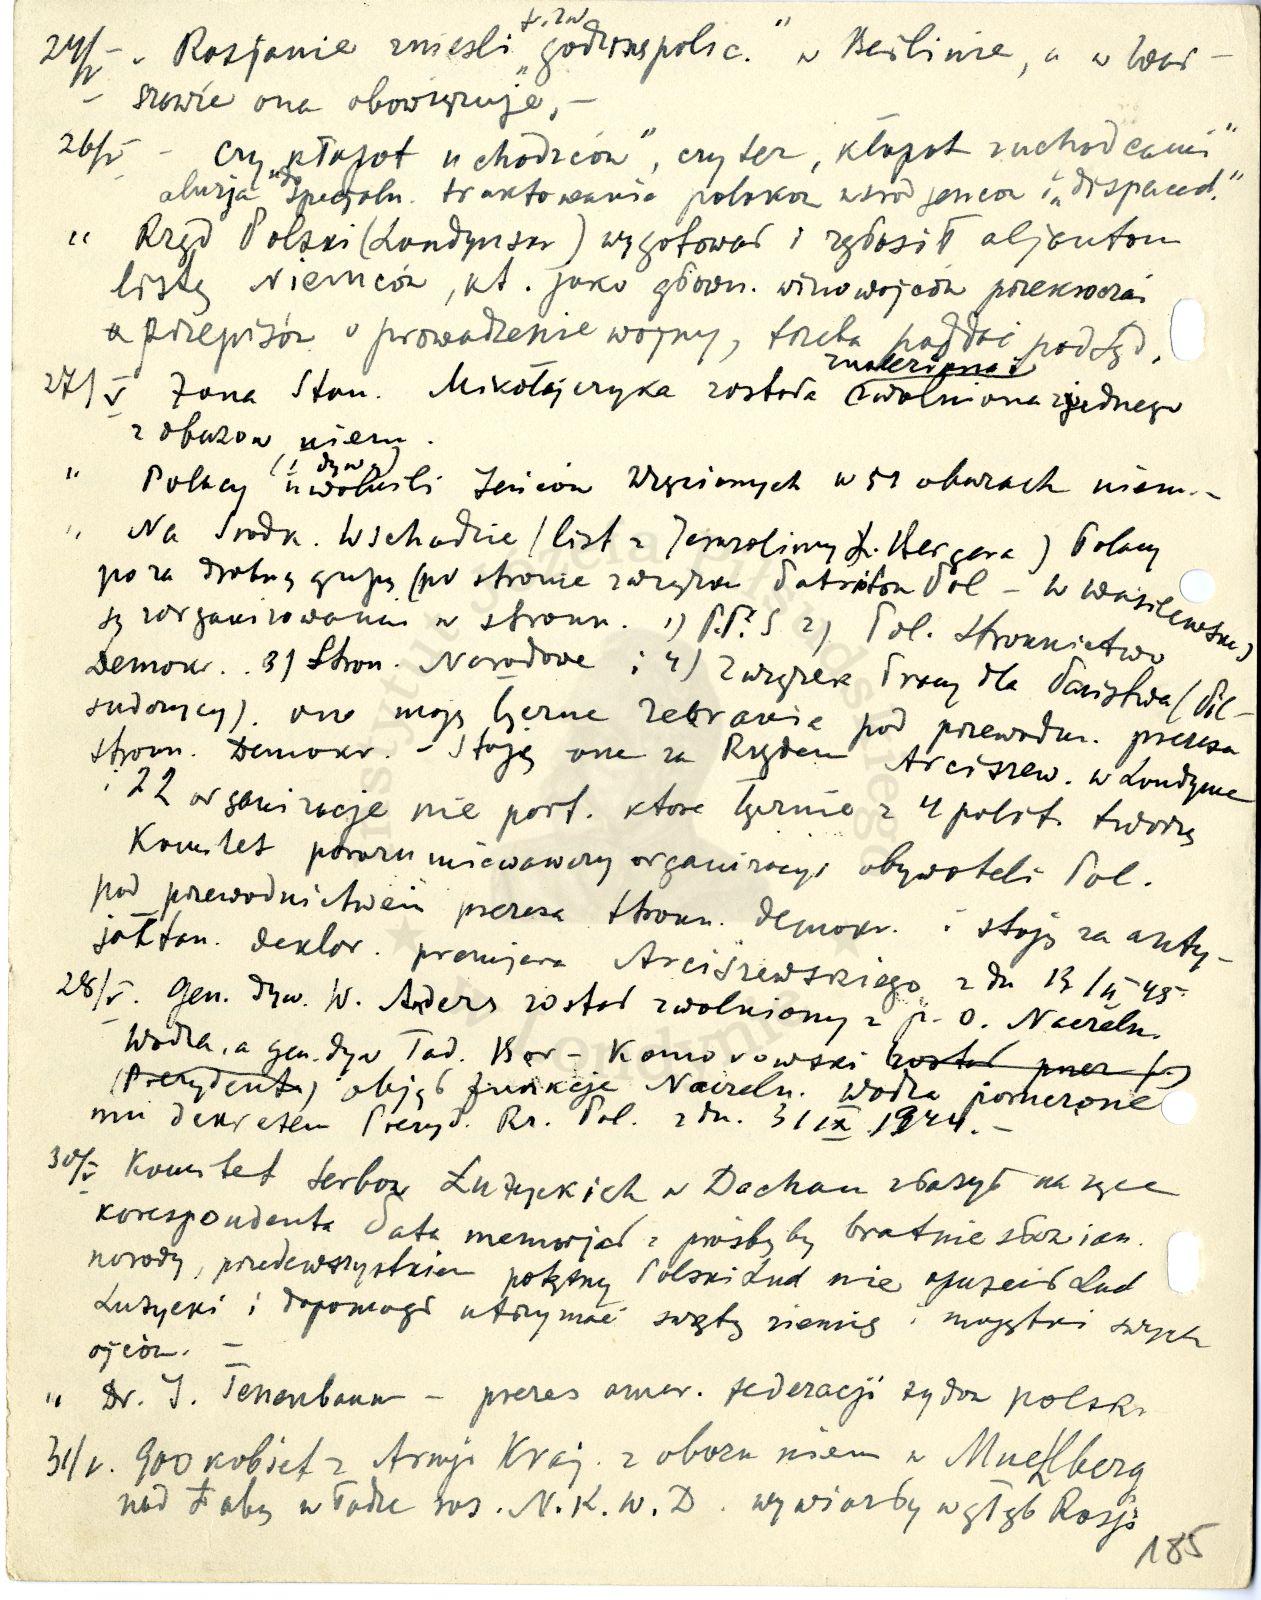 24/V – „ Rosjanie znieśli t. zw „godz. ną polic." w Berlinie, a w War –
– szawie ona obowiązuje, –
26/V – czy „kłopot uchodźców", czy też „kłopot z uchodźcami"
aluzja do specjaln. traktowania polaków wśród jeńców i „dispaced."
" Rząd Polski (Londyński) wygotował i zgłosił aljantom
listę Niemców, kt. jako główn. winowajców przekroczeń
przepisów o prowadzenie wojny, trzeba poddać pod sąd.
27/V Żona Stan. Mikołajczyka została zwolniona z jednego
z obozów niem.
" Polacy (1 dyw) uwolnili jeńców więzionych w 51 obozach niem. –
" Na Środk. Wschodzie (list z Jerozolimy Bergera) Polacy
poza drobną grupą (po stronie związku Patriotów Pol – W Wasilewska)
są zorganizowani w stronn. 1) P.P.S 2) Pol. Stronnictwo
Demokr. . 3) Stron. Narodowe i 4) Związek Pracy dla Państwa (Pił –
sudczycy). one mają łączne zebrania pod przewodn. prezesa
stronn. Demokr. – Stoją one za Rządem Arciszew. w Londynie
i 22 organizacje nie part. które łącznie z 4 polit. tworzą
Komitet porozumiewawczy organizacyj obywateli Pol.
pod przewodnictwem prezesa stronn. demokr. i stoją za anty –
jałtań. deklar. premjera Arciszewskiego z dn 13/II 45
28/V. Gen. dyw. W. Anders został zwolniony z p. o. Naczeln.
Wodza, a gen. dyw Tad. Bór – Komorowski został przez (
(Prezydenta) objął funkcję Naczeln. wodza powierzone
mu dekretem Prezyd. Rz. Pol. z dn. 31 IX 1944. –
30/V Komitet Serbów Łużyckich w Dachau złożył na ręce
korespondenta Pata memorjał z prośbą by bratnie słowian.
narody, przedewszystkiem potężny Polski Lud nie opuścił Lud
Łużycki i dopomógł utrzymać świętą ziemię i majątki swych
ojców. –
" Dr. J. Tenenbaum – prezes amer. federacji żydów polsk.
31/V. 900 kobiet z Armji Kraj. z obozu niem w Muehlberg
nad Łabą władze ros. N. K. W. D. wywiozły w głąb Rosji
185